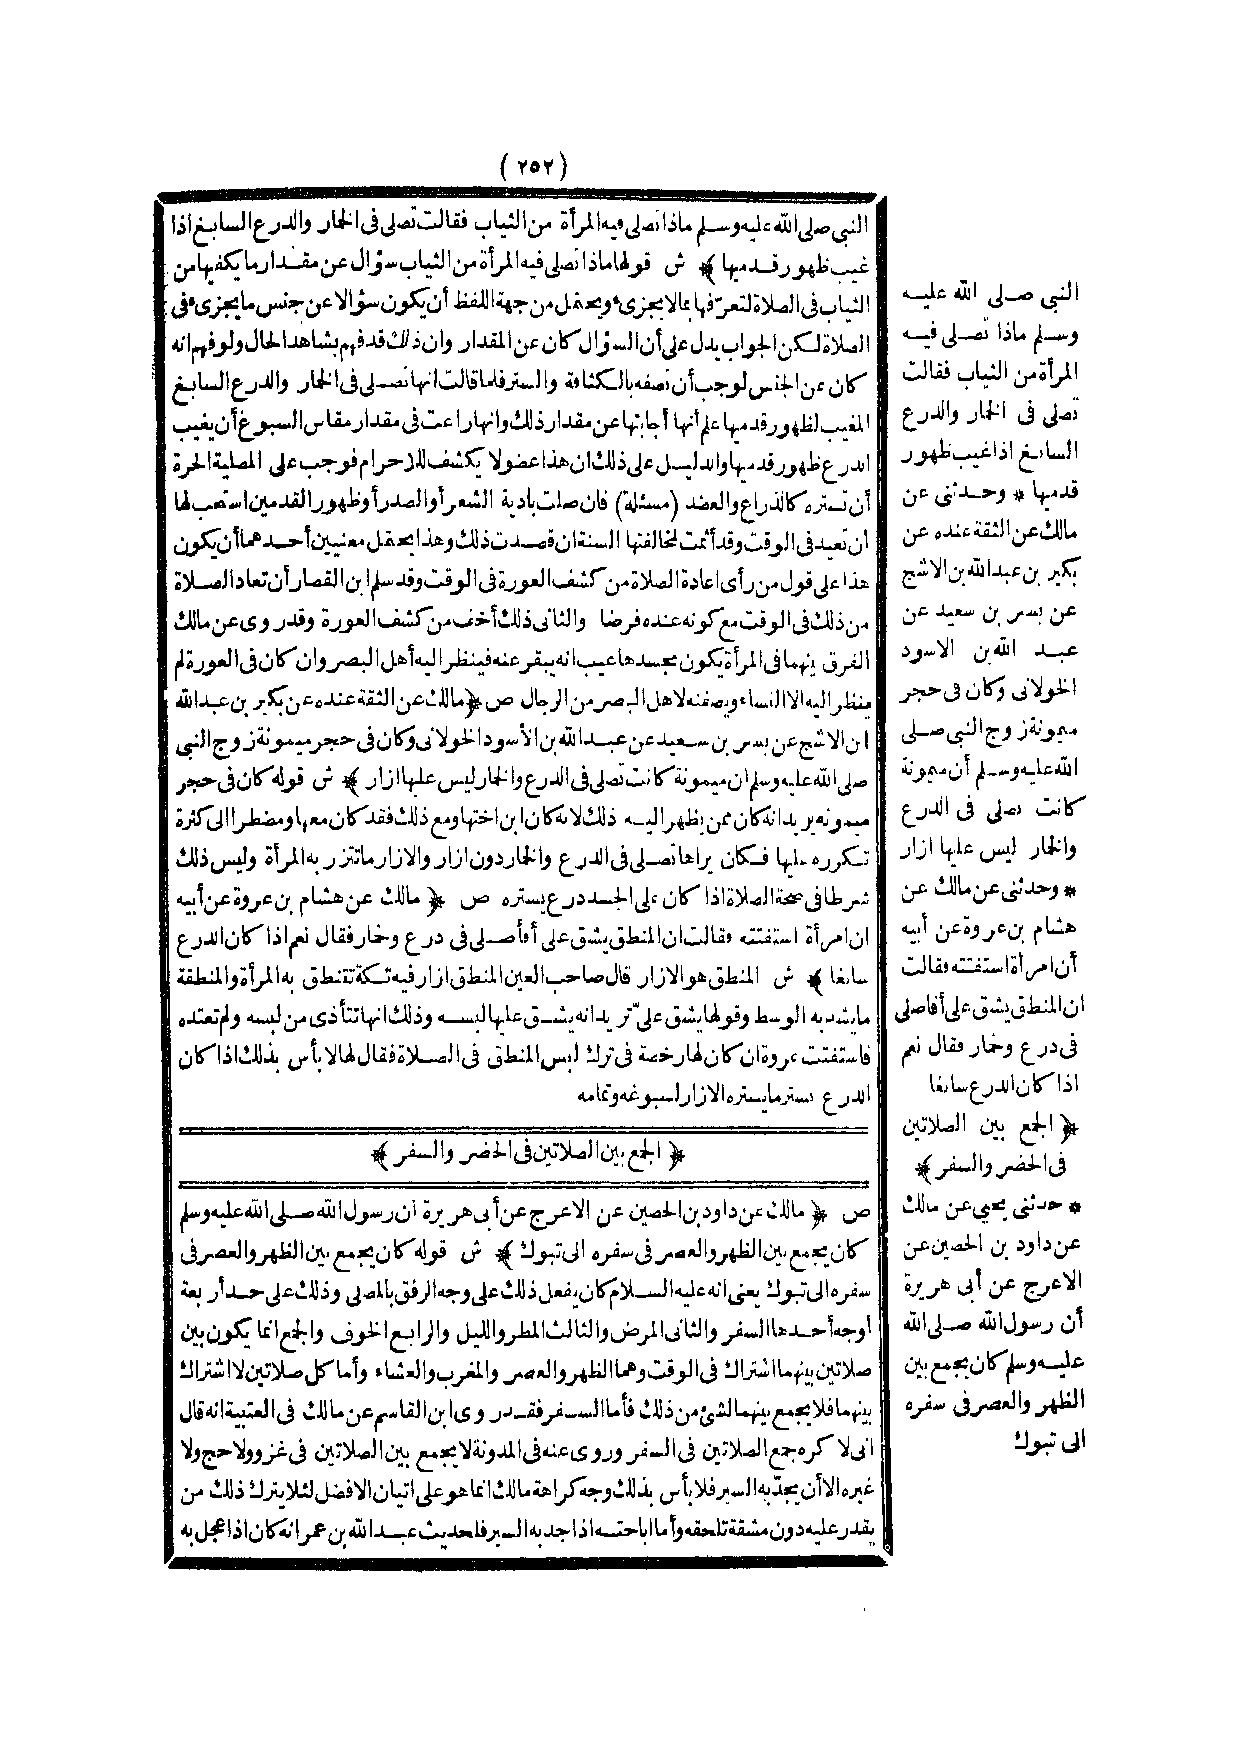 ( ٢٥٢ )
النبي صلى الله عليه وسلم ماذا تصلى فيه المرأة من الثياب فقالت تصلى فى الخمار والدرع السابغ اذا
غيب ظهور قدميها ﴾ ش قولها ماذا تصلى فيه المرأة من الثياب سؤال عن مقدار ما يكفيها من
الثياب فى الصلاة لتعرّفها بمالا يجزىء ويحتمل من جهة اللفظ أن يكون سؤالا عن جنس ما يجزىء فى
الصلاة لكن الجواب يدل على أن السؤال كان عن المقدار وان ذلك قد فهم بشاهد الحال ولو فهم انه
كان عن الجنس لوجب أن تصفه بالكثافة والستر فلما قالت انها تصلى فى الخمار والدرع السابغ
المغيب لظهور قدميها علم أنها أجابتها عن مقدار ذلك وانها راعت فى مقدار مقاس السبوغ أن يغيب
الدرع ظهور قدميها والدليل على ذلك ان هذا عضو لا يكشف للاحرام فوجب على المصلية الحرة
أن تستره كالذراع والعضد (مسئلة) فان صلت بادية الشعر أو الصدر أو ظهور القدمين استحب لها
أن تعيد فى الوقت وقد أثمت لمخالفتها السنة ان قصدت ذلك وهذا يحتمل معنيين أحدهما أن يكون
هذا على قول من رأى اعادة الصلاة من كشف العورة فى الوقت وقد سلم ابن القصار أن تعاد الصلاة
من ذلك فى الوقت مع كونه عنده فرضا والثانى ذلك أخف من كشف العورة وقد روى عن مالك
الفرق بينهما فى المرأة يكون بجسدها عيب انه يبقر عنه فينظر اليه أهل البصر وان كان فى العورة لم
ينظر اليه الا النساء ويصفنه لاهل البصر من الرجال ص ﴿ مالك عن الثقة عنده عن بكير بن عبد الله
ابن الاشج عن بسر بن سعيد عن عبد الله بن الأسود الخولانى وكان فى حجر ميمونة زوج النبي
صلى الله عليه وسلم ان ميمونة كانت تصلى فى الدرع والخمار ليس عليها ازار ﴾ ش قوله كان فى حجر
ميمونه يريد انه كان ممن يظهر اليه ذلك لانه كان ابن اختها ومع ذلك فقد كان معها ومضطرا الى كثرة
تكرره عليها فكان يراها تصلى فى الدرع والخمار دون ازار والازار ما تتزر به المرأة وليس ذلك
شرطا فى صحة الصلاة اذا كان على الجسد درع يستره ص ﴿ مالك عن هشام بن عروة عن أبيه
ان امرأة استفتته فقالت ان المنطق يشق على أفأصلى فى درع وخمار فقال نعم اذا كان الدرع
سابغا ﴾ ش المنطق هو الازار قال صاحب العين المنطق ازار فيه تكة تنتطق به المرأة والمنطقة
ما يشد به الوسط وقولها يشق علىّ تريد انه يشق عليها لبسه وذلك انها تتأذى من لبسه ولم تعتده
فاستفتت عروة ان كان لها رخصة فى ترك لبس المنطق فى الصلاة فقال لها لا بأس بذلك اذا كان
الدرع يستر ما يستره الازار لسبوغه وتمامه
﴿ الجمع بين الصلاتين فى الحضر والسفر ﴾
ص ﴿ مالك عن داود بن الحصين عن الاعرج عن أبى هريرة أن رسول الله صلى الله عليه وسلم
كان يجمع بين الظهر والعصر فى سفره الى تبوك ﴾ ش قوله كان يجمع بين الظهر والعصر فى
سفره الى تبوك يعنى انه عليه السلام كان يفعل ذلك على وجه الرفق بالمصلى وذلك على حد أربعة
أوجه أحدها السفر والثانى المرض والثالث المطر والليل والرابع الخوف والجمع انما يكون بين
صلاتين بينهما اشتراك فى الوقت وهما الظهر والعصر والمغرب والعشاء وأما كل صلاتين لا اشتراك
بينهما فلا يجمع بينهما لشئ من ذلك فأما السفر فقد روى ابن القاسم عن مالك فى العتبية انه قال
انى لا كره جمع الصلاتين فى السفر وروى عنه فى المدونة لا يجمع بين الصلاتين فى غزو ولا حج ولا
غيره الا أن يجدّ به السير فلا بأس بذلك وجه كراهة مالك انما هو على اتيان الافضل لئلا يترك ذلك من
يقدر عليه دون مشقة تلحقه وأما اباحته اذا جد به السير فلحديث عبد الله بن عمر انه كان اذا عجل به
النبي صلى الله عليه
وسلم ماذا تصلى فيه
المرأة من الثياب فقالت
تصلى فى الخمار والدرع
السابغ اذا غيب ظهور
قدميها * وحدثنى عن
مالك عن الثقة عنده عن
بكير بن عبد الله بن الاشج
عن بسر بن سعيد عن
عبد الله بن الاسود
الخولانى وكان فى حجر
ميمونة زوج النبي صلى
الله عليه وسلم أن ميمونة
كانت تصلى فى الدرع
والخمار ليس عليها ازار
* وحدثنى عن مالك عن
هشام بن عروة عن أبيه
أن امرأة استفتته فقالت
ان المنطق يشق على أفأصلى
فى درع وخمار فقال نعم
اذا كان الدرع سابغا
﴿ الجمع بين الصلاتين
فى الحضر والسفر ﴾
* حدثنى يحيى عن مالك
عن داود بن الحصين عن
الاعرج عن أبى هريرة
أن رسول الله صلى الله
عليه وسلم كان يجمع بين
الظهر والعصر فى سفره
الى تبوك